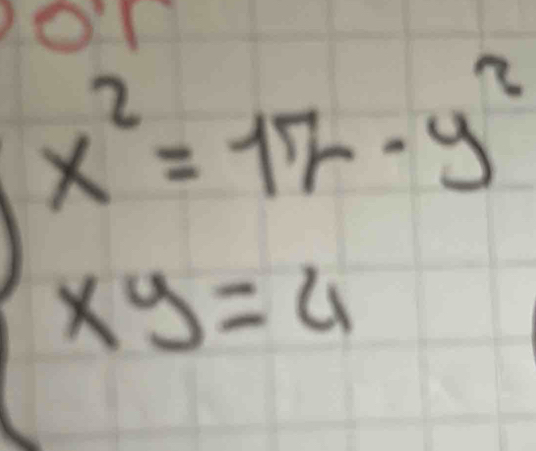 x² = 17 - y²
xy = 4